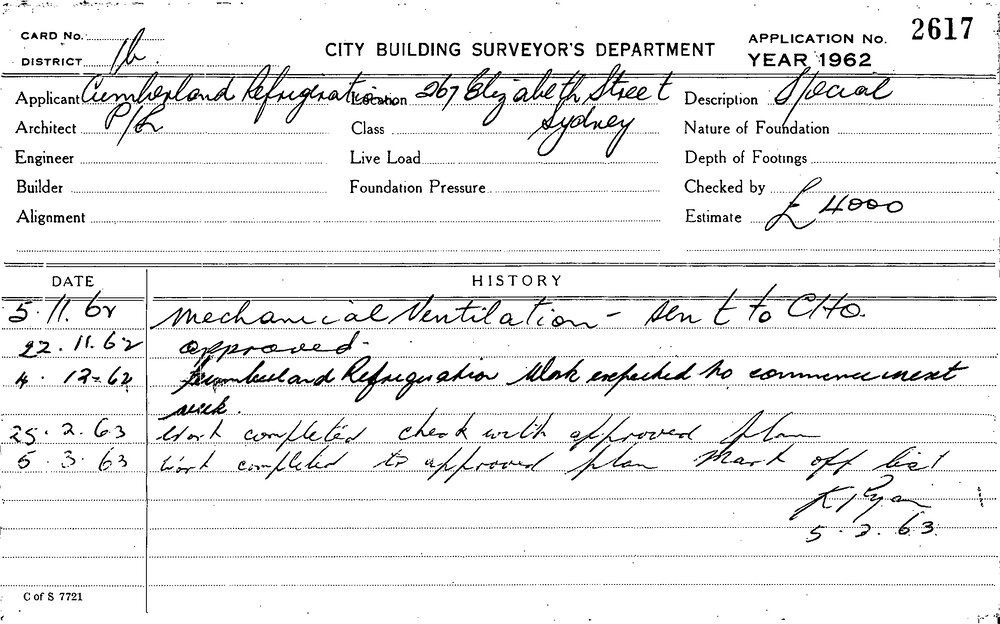 CARD No.
DISTRICT 1b.
CITY BUILDING SURVEYOR'S DEPARTMENT
APPLICATION No. 2617
YEAR 1962
Applicant Cumberland Refrigeration Location 267 Elizabeth Street Description Special
Architect P/L Class Sydney Nature of Foundation
Engineer Live Load Depth of Footings
Builder Foundation Pressure Checked by
Alignment Estimate £ 4000
DATE HISTORY
5.11.62 Mechanical Ventilation - sent to CHO.
22.11.62 approved.
4.12.62 Cumberland Refrigeration Work expected to commence next
week.
25.2.63 Work completed check with approved plan
5.3.63 Work completed to approved plan Mark off list
K Ryan
5.3.63.
C of S 7721